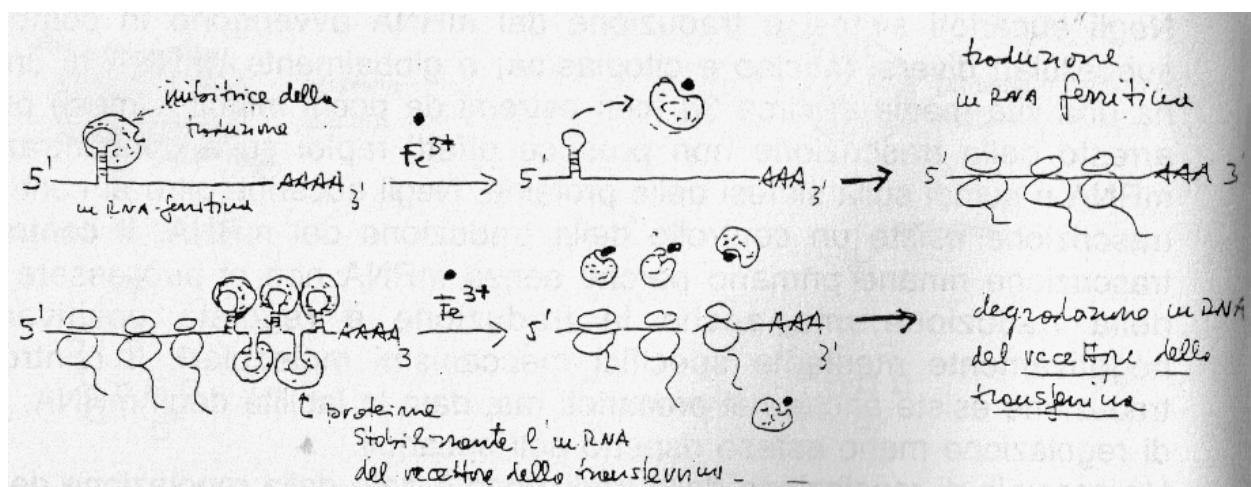 inibitrice della
traduzione
Fe3+
traduzione
mRNA ferritina
5' AAAA 3'
5' AAAA 3'
5' AAA 3'
mRNA-ferritina
Fe3+
5' AAAA 3'
5' AAAA 3'
degradazione mRNA
del recettore della
transferrina
proteina
stabilizzante l'mRNA
del recettore della transferrina